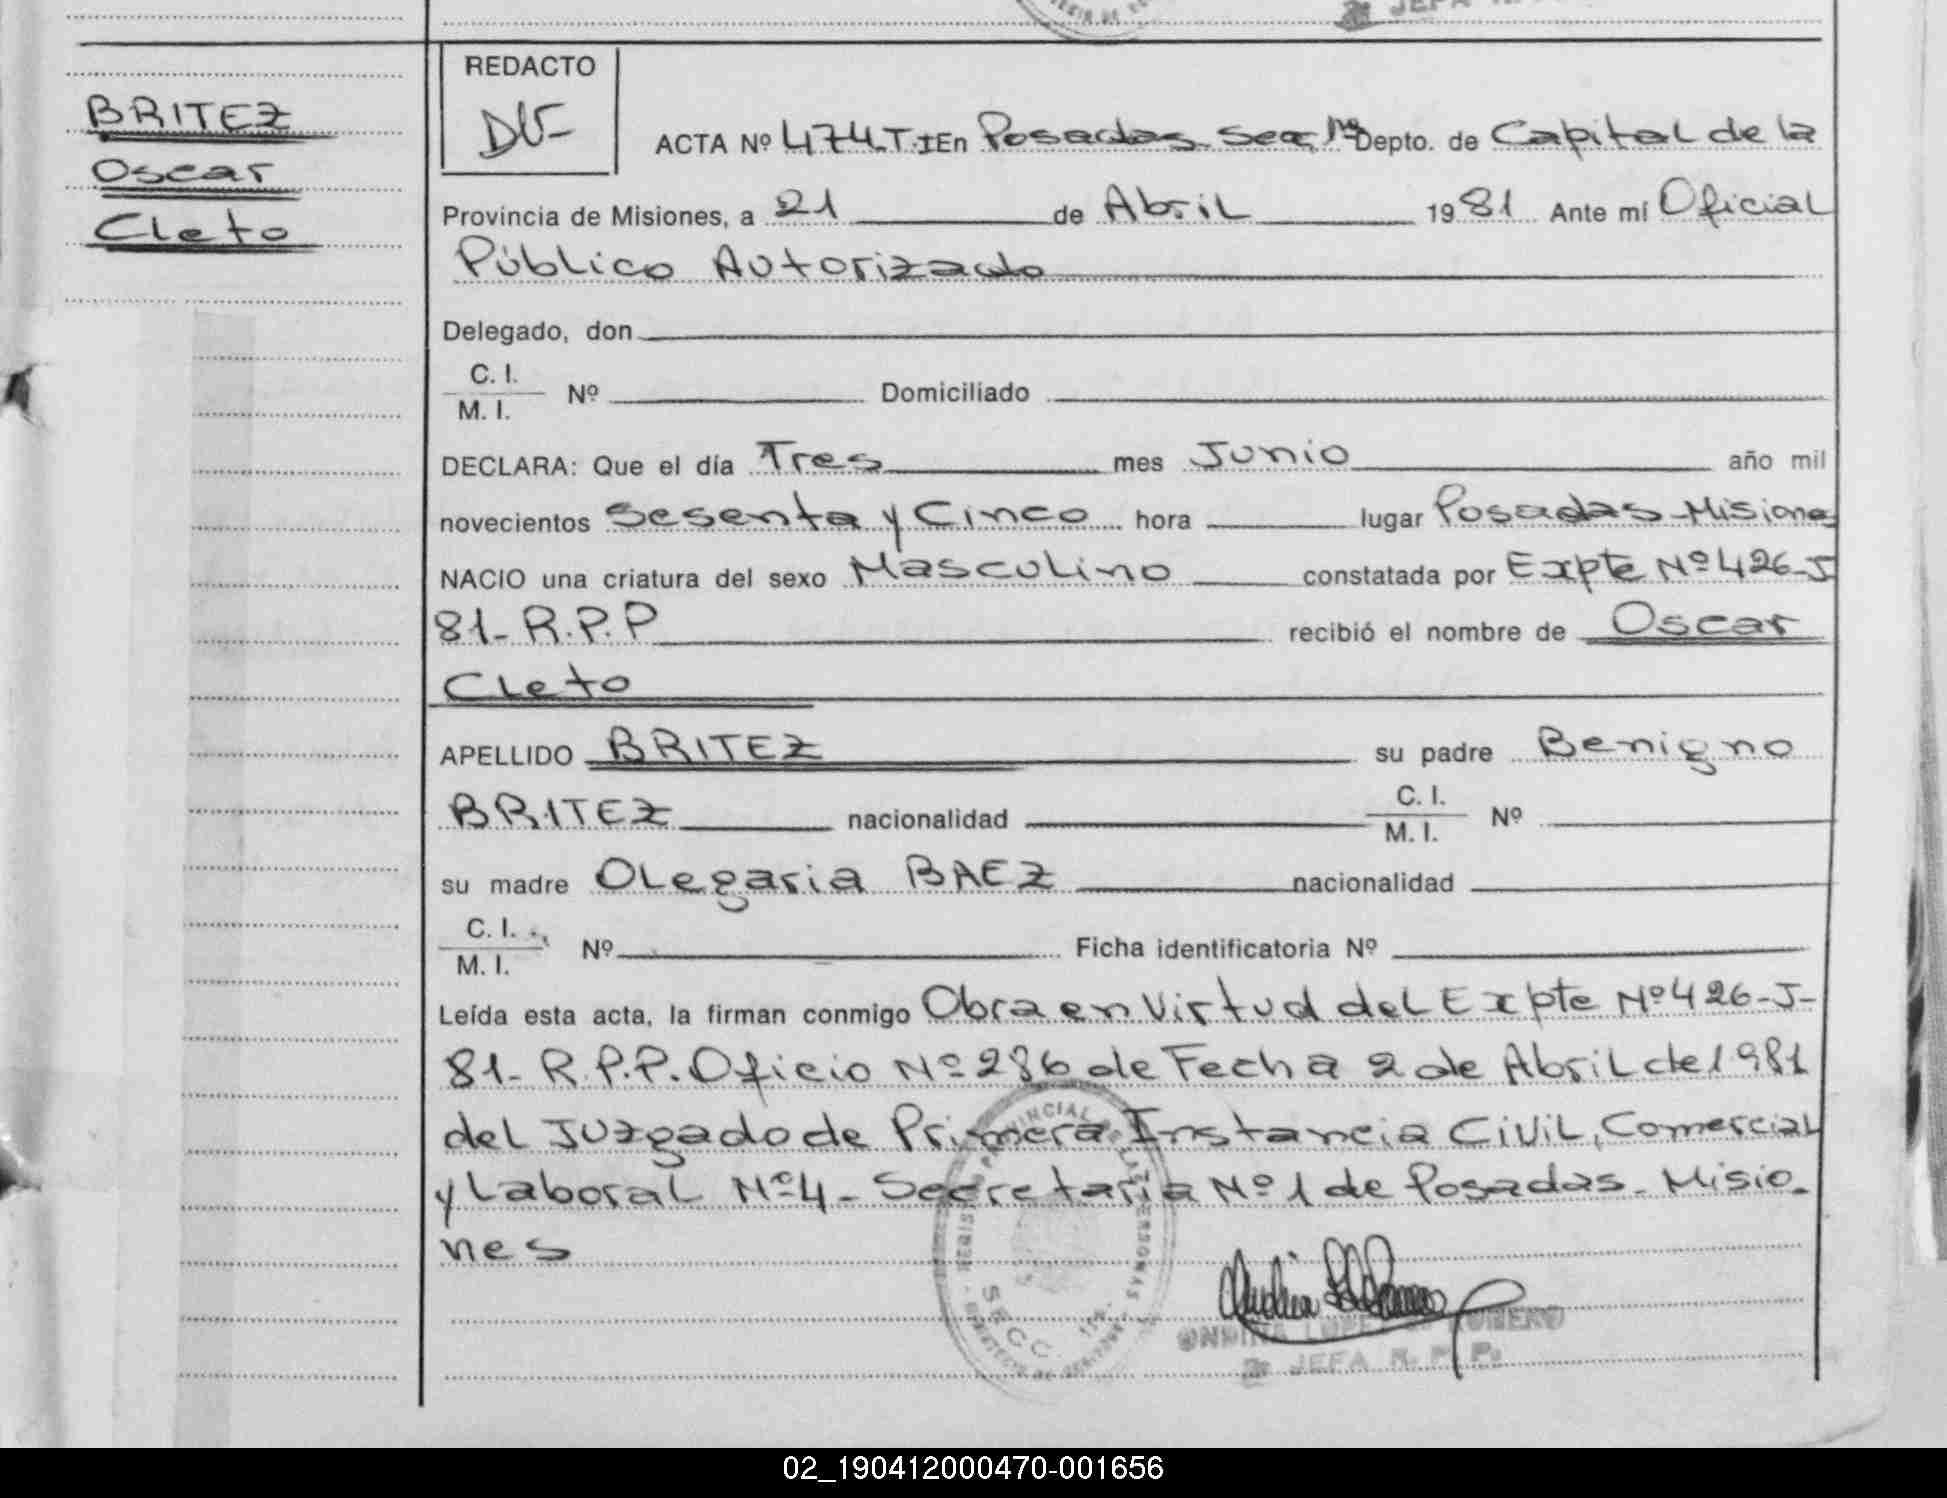 BRITEZ
Oscar
Cleto
REDACTO
ACTA Nº 474.T.I En Posadas Sec. 1ra Depto. de Capital de la
Provincia de Misiones, a 21 de Abril 1981 Ante mí Oficial
Público Autorizado
Delegado, don
C. I.
M. I. Nº Domiciliado
DECLARA: Que el día Tres mes Junio año mil
novecientos Sesenta y Cinco hora lugar Posadas-Misiones
NACIO una criatura del sexo Masculino constatada por Expte Nº 426-J
81-R.P.P recibió el nombre de Oscar
Cleto
APELLIDO BRITEZ su padre Benigno
BRITEZ nacionalidad C. I.
M. I. Nº
su madre OLegaria BAEZ nacionalidad
C. I.
M. I. Nº Ficha identificatoria Nº
Leída esta acta, la firman conmigo Obra en Virtud del Expte Nº 426-J-
81-R.P.P. Oficio Nº 286 de Fecha 2 de Abril de 1981
del Juzgado de Primera Instancia Civil, Comercial
y Laboral Nº 4-Secretaria Nº 1 de Posadas-Misio-
nes
SECC. 1ra.
ONDINA ROMERO
2º JEFA R. P. P.
02_190412000470-001656